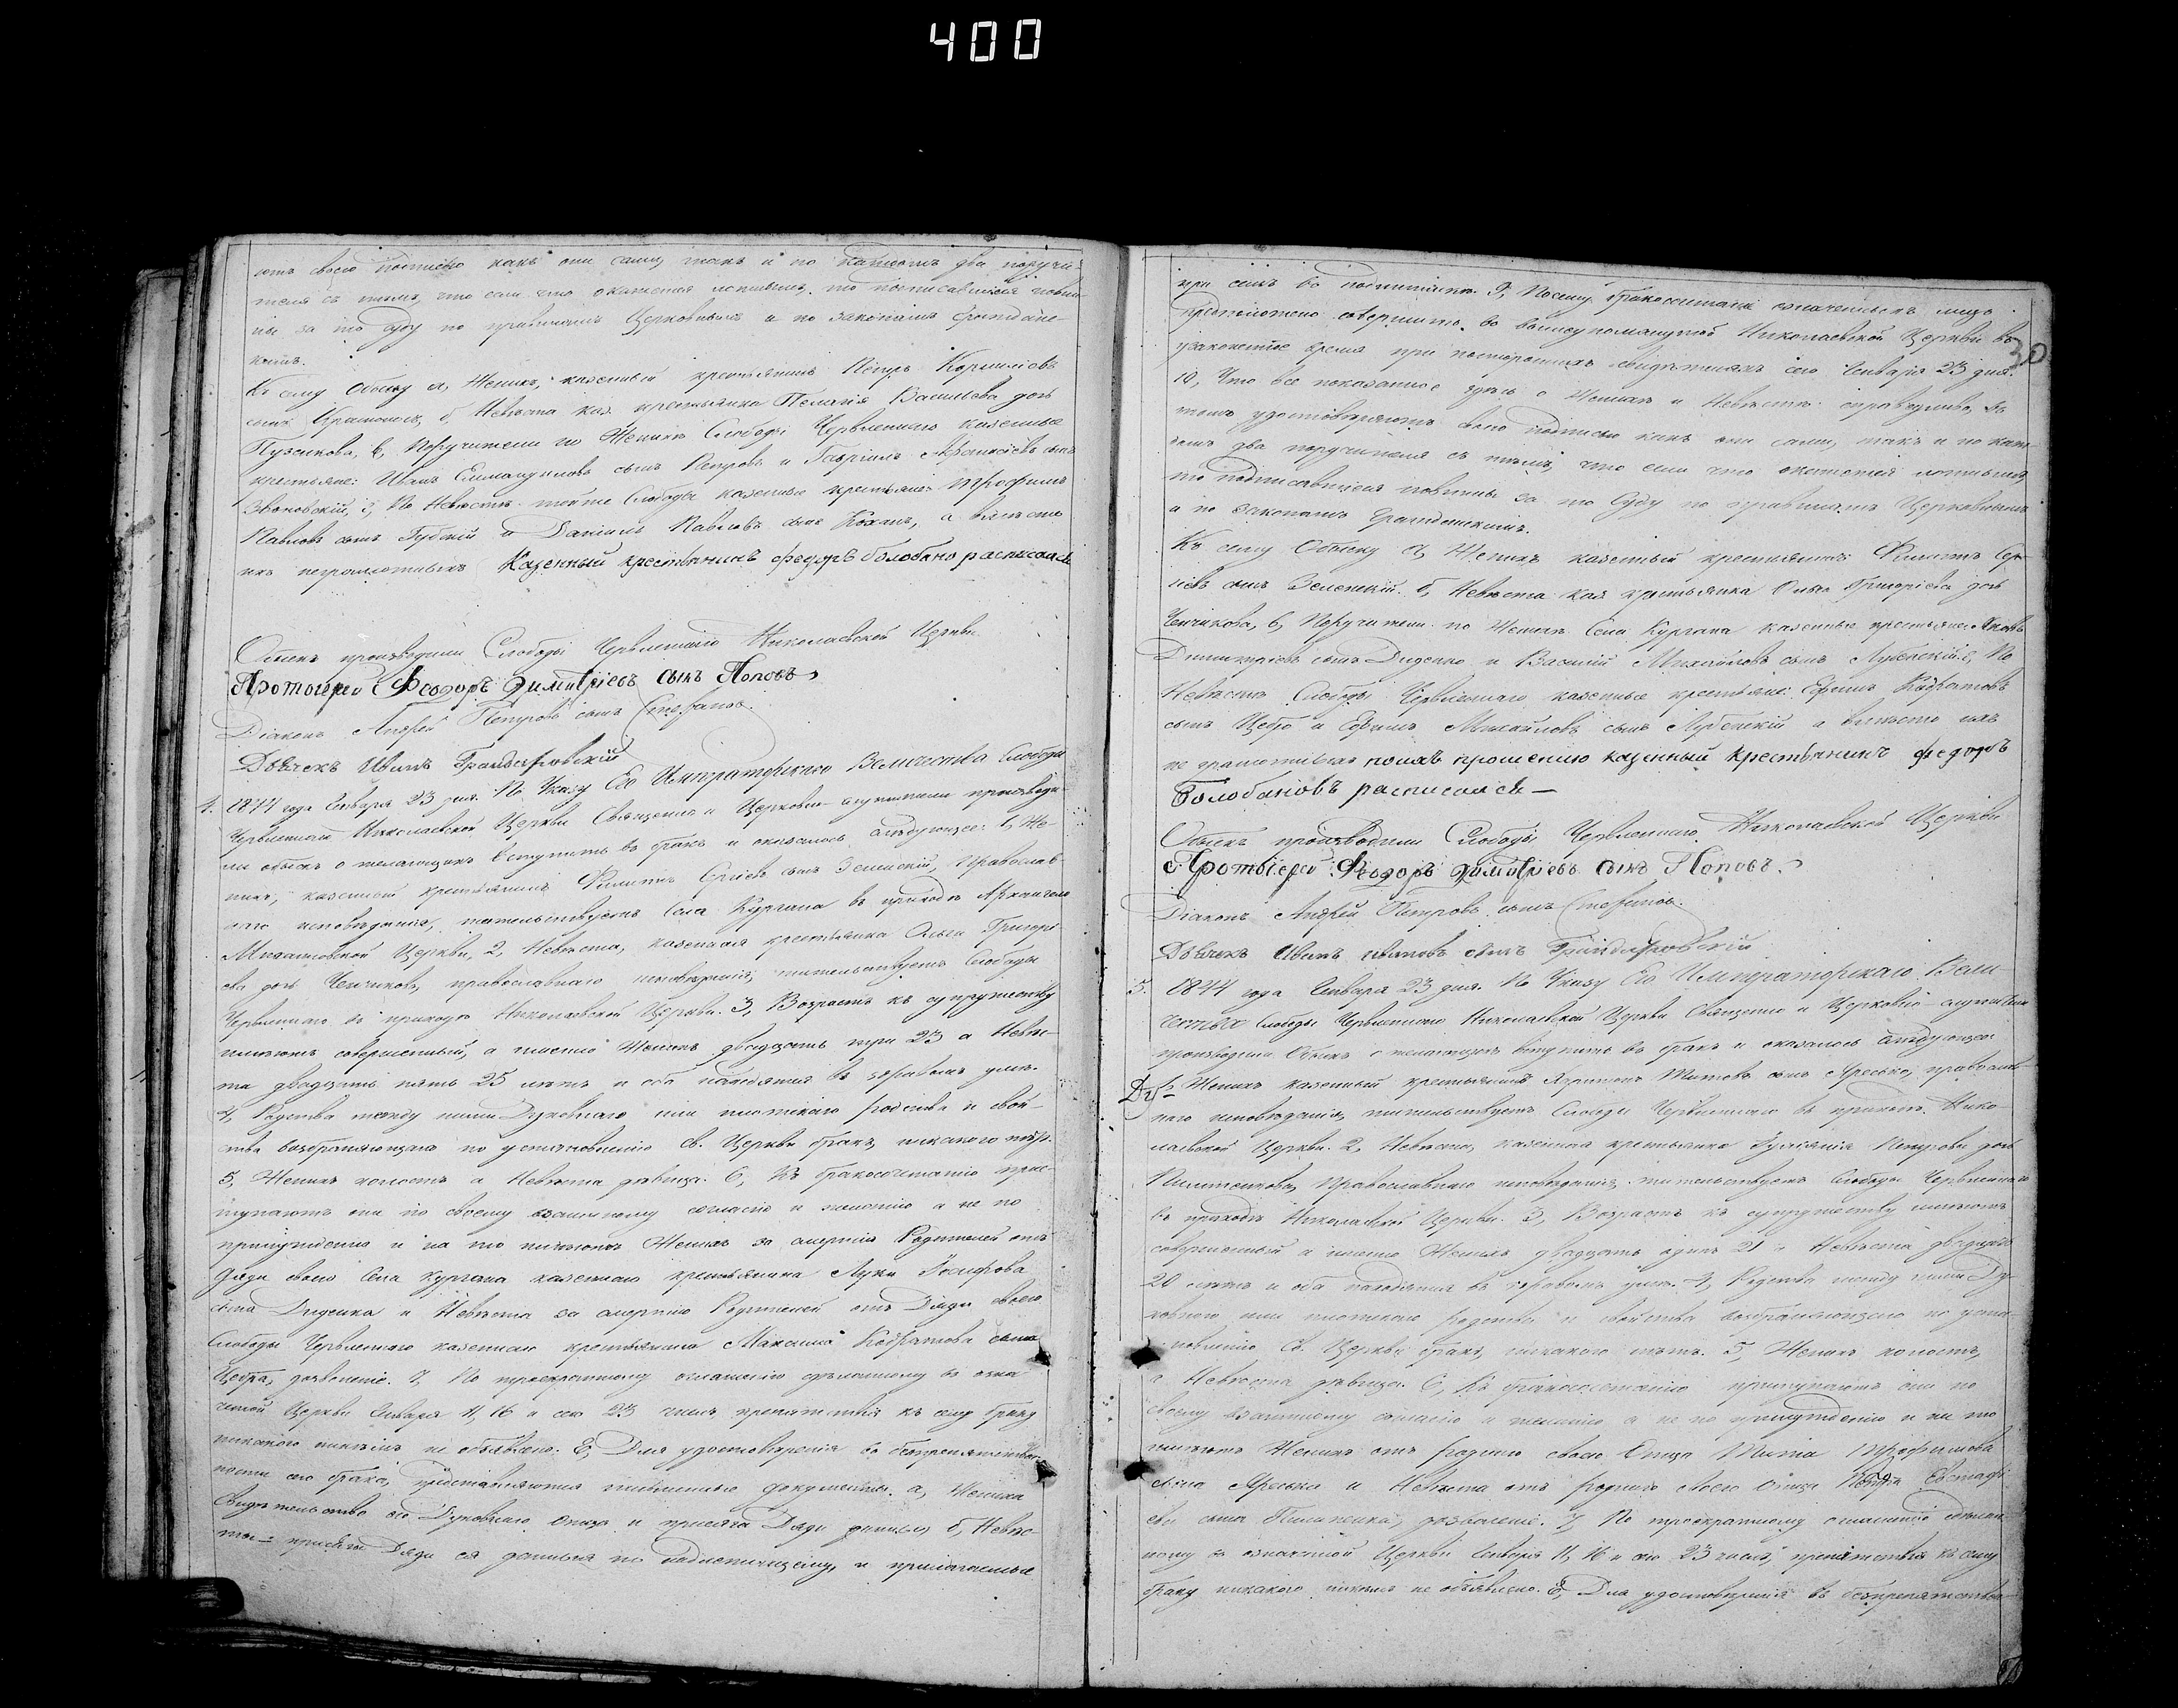 400
ютъ своею подписью какъ они сами, такъ и по каждомъ два поручи-
теля съ тѣмъ, что если что окажется ложнымъ, то подписавшіеся повин-
ны за то суду по правиламъ Церковнымъ и по законамъ граждан-
скимъ.
Къ сему обыску а, Женихъ, казенный крестьянинъ Петръ Корниліевъ
сынъ б, Невѣста каз. крестьянка Пелагія Васильева дочь
Пузикова, в, Поручители по Женихѣ Слободы Червленнаго казенные
крестьяне: Иванъ сынъ Петровъ и Гавріилъ Афанасіевъ сынъ
Звоновскій, г, По Невѣстѣ тойже Слободы казенные крестьяне: Трофимъ
Павловъ сынъ Губскій и Даніилъ Павловъ сынъ Коханъ, а вмѣсто
ихъ неграмотныхъ Казенный крестьянинъ федоръ болобано расписался
Обыскъ производили Слободы Червленнаго Николаевской Церкви
Протоіерей Феодоръ Димитріевъ сынъ Поповъ
Діаконъ Андрей Петровъ сынъ Стефановъ.
Дьячекъ Иванъ
4. 1844 года Генваря 23 дня. По Указу Его Императорскаго Величества Слободы
Червленнаго Николаевской Церкви Священно и Церковно-служители производи-
ли обыскъ о желающихъ вступить въ бракъ и оказалось слѣдующее: 1, Же-
нихъ, казенный крестьянинъ Филиппъ Сергіевъ сынъ Зеленскій, православ-
наго исповѣданія, жительствуетъ Села Кургана въ приходѣ Архангело
Михайловской Церкви, 2, Невѣста, казенная крестьянка Ольга Григорі-
ева дочь Ченчикова, православнаго исповѣданія, жительствуетъ Слободы
Червленнаго въ приходѣ Николаевской Церкви. 3, Возрастъ къ супружеству
имѣютъ совершенный, а именно Женихъ двадцать три 23 а Невѣс-
та двадцать пять 25 лѣтъ и оба находятся въ здравомъ умѣ.
4, Родства между ними Духовнаго или плотскаго родства и свой-
ства возбраняющаго по установленію св. Церкви бракъ, никакого нѣтъ.
5, Женихъ холостъ а Невѣста дѣвица. 6, Къ бракосочетанію прис-
тупаютъ они по своему взаимному согласію и желанію а не по
принужденію и на то имѣютъ Женихъ за смертію Родителей отъ
Дяди своего Села Кургана казеннаго крестьянина Луки Іосифова
сына Диденка и Невѣста за смертію Родителей отъ Дяди своего
Слободы Червленнаго казеннаго крестьянина Максима Кодратова сына
Цебра, дозволеніе. 7, По троекратному оглашенію сдѣланному въ озна-
ченной Церкви Генваря 11, 16 и сего 23 числъ, препятствія къ сему браку
никакого никѣмъ не объявлено. 8, Для удостовѣренія въ безпрепятствен-
ности сего брака, представляются письменные документы. а, Жениха
Свидѣтельство его Духовнаго Отца и присяга Дяди данныя, б, Невѣс-
ты - присяга Дяди ея данная по надлежащему, и прилагаемые
при семъ въ подлинникѣ. 9, Посему бракосочетаніе означенныхъ лицъ
предположено совершить въ вышеупомянутой Николаевской Церкви въ
30
узаконенное время при постороннихъ свидѣтеляхъ сего Генваря 23 дня.
10, Что все показанное здѣсь о Женихѣ и Невѣстѣ справедливо, въ
томъ удостовѣряютъ своею подписью какъ они сами, такъ и по каж-
домъ два поручителя съ тѣмъ, что если что окажется ложнымъ,
то подписавшіеся повинны за то Суду по правиламъ Церковнымъ
и по законамъ Гражданскимъ.
Къ сему Обыску а, Женихъ казенный крестьянинъ Филиппъ Сер-
гіевъ сынъ Зеленскій. б, Невѣста каз. крестьянка Ольга Григоріева дочь
Ченчикова, в, Поручители по Женихѣ Села Кургана казенные крестьяне: Яковъ
Димитріевъ сынъ Диденко и Василій Михайловъ сынъ Лубенскій. г, По
Невѣстѣ Слободы Червленнаго казенные крестьяне: Ефимъ Кодратовъ
сынъ Цебро и Ефимъ Михайловъ сынъ Лубенскій а вмѣсто ихъ
не грамотныхъ поихъ прошению казенный крестьянинъ федоръ
Болобановъ расписался —
Обыскъ производили Слободы Червленнаго Николаевской Церкви
Протоіерей Феодоръ Димитріевъ сынъ Поповъ.
Діаконъ Андрей Петровъ сынъ Стефановъ.
Дьячекъ Иванъ ивановъ сынъ
5. 1844 года Генваря 23 дня. По Указу Его Императорскаго Вели-
чества Слободы Червленнаго Николаевской Церкви Священно и Церковно-служители
производили Обыскъ о желающихъ вступить въ бракъ и оказалось слѣдующее:
1, Женихъ казенный крестьянинъ Харитонъ Титовъ сынъ Яресько, православ-
наго исповѣданія, жительствуетъ Слободы Червленнаго въ приходѣ Нико-
лаевской Церкви. 2, Невѣста, казенная крестьянка Іуліанія Петрова дочь
Пилипенкова, Православнаго исповѣданія, жительствуетъ Слободы Червленнаго
въ приходѣ Николаевской Церкви. 3, Возрастъ къ супружеству имѣютъ
совершенный а именно Женихъ двадцать одинъ 21 а Невѣста двадцать
20 лѣтъ и оба находятся въ здравомъ умѣ. 4, Родства между ними Ду-
ховнаго или плотскаго родства и свойства возбраняющаго по уста-
новленію Св. Церкви бракъ, никакого нѣтъ. 5, Женихъ холостъ,
а Невѣста дѣвица. 6, Къ бракосочетанію приступаютъ они по
своему взаимному согласію и желанію а не по принужденію и на то
имѣютъ Женихъ отъ роднаго своего Отца Тита Трофимова
сына Яреська и Невѣста отъ роднаго своего Отца Петра Евстафі-
ева сына Пилипенка, дозволеніе. 7, По троекратному оглашенію сдѣлан-
ному въ означенной Церкви Генваря 11, 16 и сего 23 числъ, препятствія къ сему
браку никакого никѣмъ не объявлено. 8, Для удостовѣренія въ безпрепятствен-